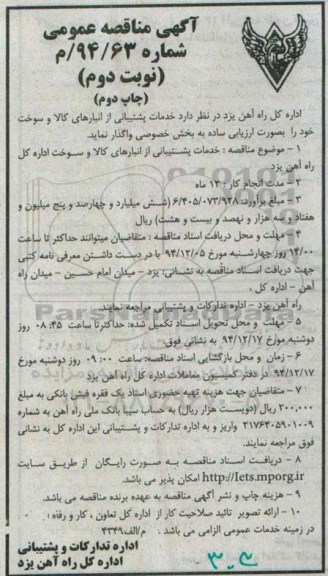 آگهی مناقصه عمومی
شماره ۹۴/۶۳/م
(نوبت دوم)
(چاپ دوم)
اداره کل راه آهن یزد در نظر دارد خدمات پشتیبانی از انبارهای کالا و سوخت
خود را بصورت ارزیابی ساده به بخش خصوصی واگذار نماید.
۱ - موضوع مناقصه : خدمات پشتیبانی از انبارهای کالا و سوخت اداره کل
راه آهن یزد
۲ - مدت انجام کار : ۱۲ ماه
۳ - مبلغ برآورد: ۶/۴۰۵/۰۷۳/۹۲۸ (شش میلیارد و چهارصد و پنج میلیون و
هفتاد و سه هزار و نهصد و بیست و هشت) ریال
۴ - مهلت و محل دریافت اسناد مناقصه : متقاضیان میتوانند حداکثر تا ساعت
۱۴/۰۰ روز چهارشنبه مورخ ۹۴/۱۲/۰۵ با در دست داشتن معرفی نامه کتبی
جهت دریافت اسناد مناقصه به نشانی: یزد - میدان امام حسین - میدان راه
آهن - اداره کل .
راه آهن یزد - اداره تدارکات و پشتیبانی مراجعه نمایند.
۵ - مهلت و محل تحویل اسناد تکمیل شده: حداکثر تا ساعت ۰۸:۴۵ روز
دوشنبه مورخ ۹۴/۱۲/۱۷ به نشانی فوق
۶ - زمان و محل بازگشایی اسناد مناقصه: ساعت ۰۹:۰۰ روز دوشنبه مورخ
۹۴/۱۲/۱۷ در دفتر کمیسیون معاملات اداره کل راه آهن یزد
۷ - متقاضیان جهت هزینه تهیه حضوری اسناد یک فقره فیش بانکی به مبلغ
۲۰۰,۰۰۰ ریال (دویست هزار ریال) به حساب سیبا بانک ملی راه آهن به شماره
۲۱۷۶۴۰۵۹۰۱۰۰۹ واریز و به اداره تدارکات و پشتیبانی این اداره کل به نشانی
فوق مراجعه نمایند.
۸ - دریافت اسناد مناقصه به صورت رایگان از طریق سایت
http://Iets.mporg.ir امکان پذیر می باشد.
۹ - هزینه چاپ و نشر آگهی مناقصه به عهده برنده مناقصه می باشد.
۱۰ - ارائه تصویر تائید صلاحیت کار از اداره کل تعاون ، کار و رفاه :
در زمینه خدمات عمومی الزامی می باشد . م/الف۴۳۴۹
اداره تدارکات و پشتیبانی
اداره کل راه آهن یزد